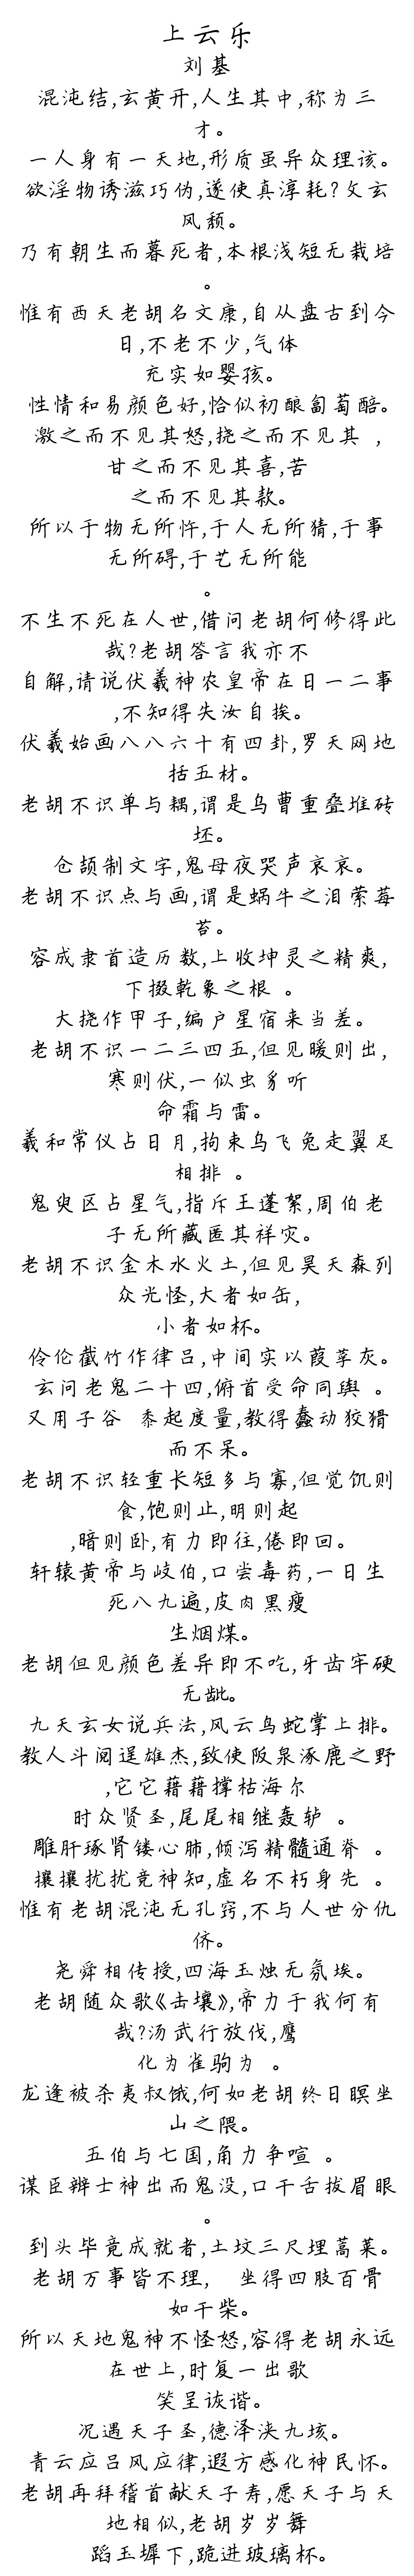 上云乐
刘基
混沌结,玄黄开,人生其中,称为三
才。
一人身有一天地,形质虽异众理该。
欲淫物诱滋巧伪,遂使真淳耗?攵玄
风颓。
乃有朝生而暮死者,本根浅短无栽培
。
惟有西天老胡名文康,自从盘古到今
日,不老不少,气体
充实如婴孩。
性情和易颜色好,恰似初酿匐萄醅。
激之而不见其怒,挠之而不见其 ,
甘之而不见其喜,苦
之而不见其欸。
所以于物无所忤,于人无所猜,于事
无所碍,于艺无所能
。
不生不死在人世,借问老胡何修得此
哉?老胡答言我亦不
自解,请说伏羲神农皇帝在日一二事
,不知得失汝自挨。
伏羲始画八八六十有四卦,罗天网地
括五材。
老胡不识单与耦,谓是乌曹重叠堆砖
坯。
仓颉制文字,鬼母夜哭声哀哀。
老胡不识点与画,谓是蜗牛之泪萦莓
苔。
容成隶首造历数,上收坤灵之精爽,
下掇乾象之根 。
大挠作甲子,编户星宿来当差。
老胡不识一二三四五,但见暖则出,
寒则伏,一似虫豸听
命霜与雷。
羲和常仪占日月,拘束乌飞兔走翼足
相排 。
鬼臾区占星气,指斥王蓬絮,周伯老
子无所藏匿其祥灾。
老胡不识金木水火土,但见昊天森列
众光怪,大者如缶,
小者如杯。
伶伦截竹作律吕,中间实以葭莩灰。
玄问老鬼二十四,俯首受命同舆 。
又用子谷 黍起度量,教得蠢动狡猾
而不呆。
老胡不识轻重长短多与寡,但觉饥则
食,饱则止,明则起
,暗则卧,有力即往,倦即回。
轩辕黄帝与岐伯,口尝毒药,一日生
死八九遍,皮肉黑瘦
生烟煤。
老胡但见颜色差异即不吃,牙齿牢硬
无龇。
九天玄女说兵法,风云鸟蛇掌上排。
教人斗阋逞雄杰,致使阪泉涿鹿之野
,它它藉藉撑枯海尔
时众贤圣,尾尾相继轰轳 。
雕肝琢肾镂心肺,倾泻精髓通脊 。
攘攘扰扰竞神知,虚名不朽身先 。
惟有老胡混沌无孔窍,不与人世分仇
侪。
尧舜相传授,四海玉烛无氛埃。
老胡随众歌《击壤》,帝力于我何有
哉?汤武行放伐,鹰
化为雀驹为 。
龙逢被杀夷叔饿,何如老胡终日瞑坐
山之隈。
五伯与七国,角力争喧 。
谋臣辨士神出而鬼没,口干舌拔眉眼
。
到头毕竟成就者,土坟三尺埋蒿莱。
老胡万事皆不理, 坐得四肢百骨
如干柴。
所以天地鬼神不怪怒,容得老胡永远
在世上,时复一出歌
笑呈诙谐。
况遇天子圣,德泽浃九垓。
青云应吕风应律,遐方感化神民怀。
老胡再拜稽首献天子寿,愿天子与天
地相似,老胡岁岁舞
蹈玉墀下,跪进玻璃杯。